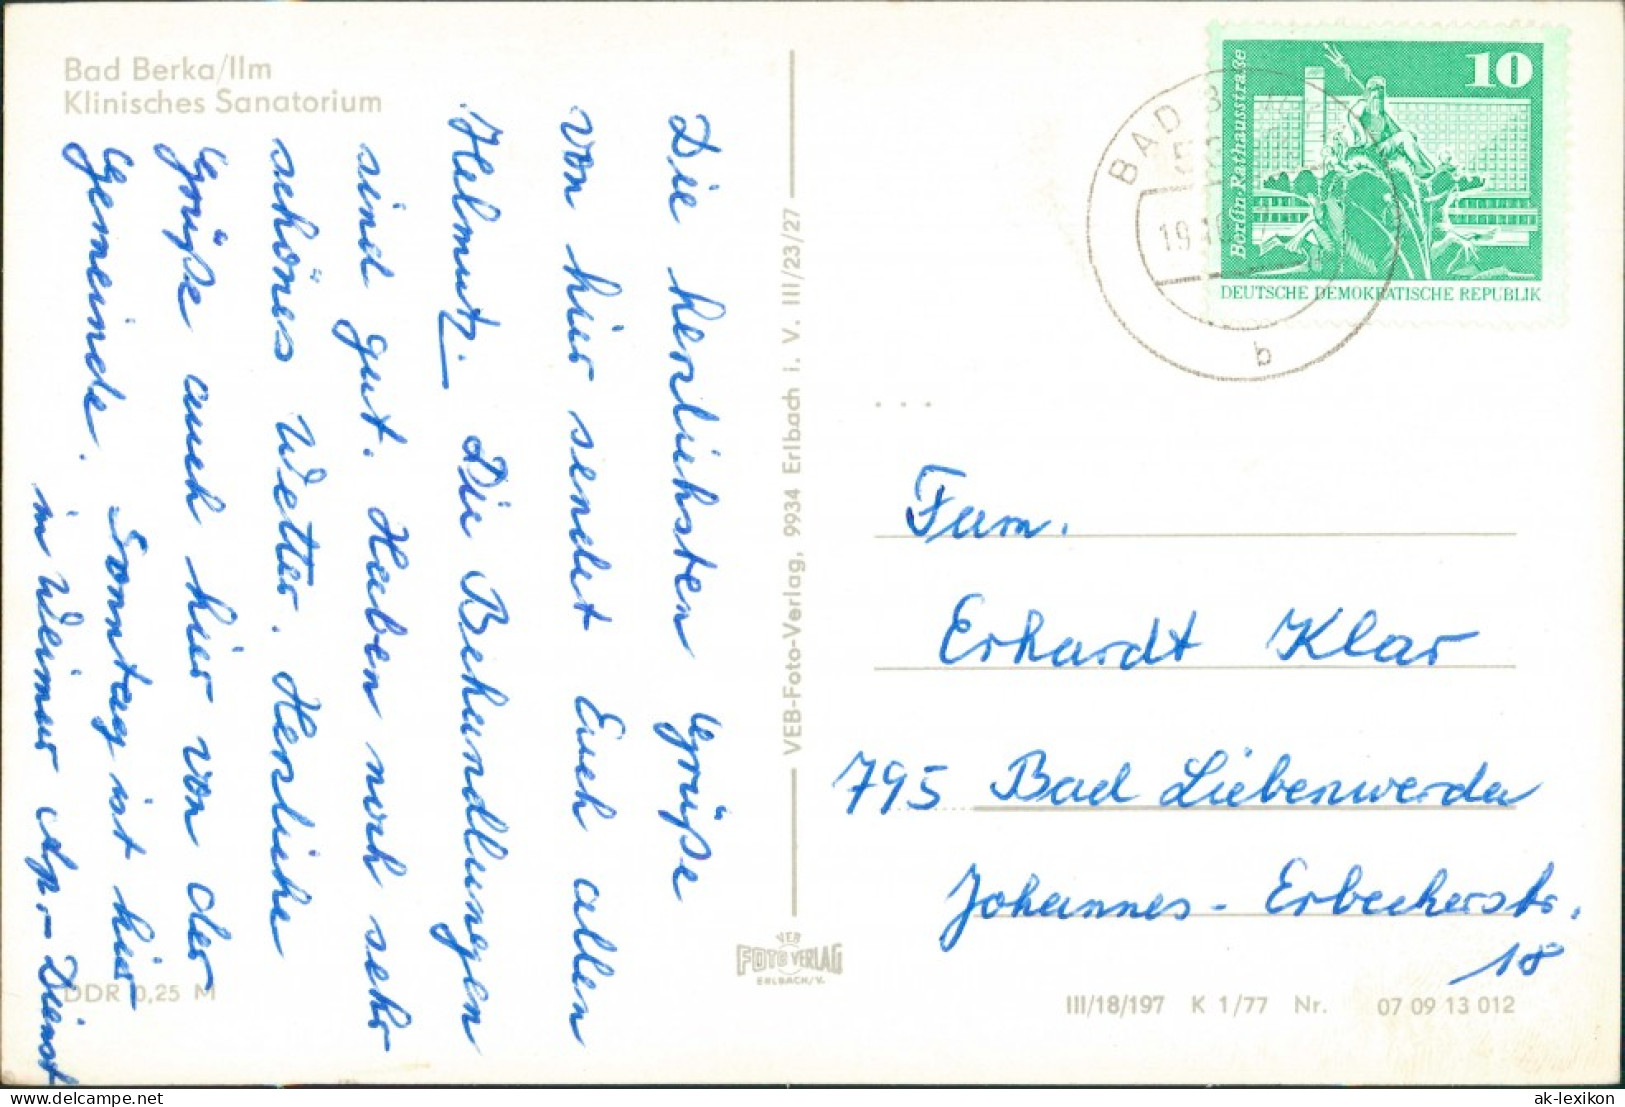 Bad Berka/Ilm
Klinisches Sanatorium
Die herzlichsten Grüße
von hier sendet Euch allen
Helmut. Die Behandlungen
sind gut. Haben noch sehr
schönes Wetter. Herzliche
Grüße auch hier von der
Gemeinde. Sonntag ist hier
in Weimar Ap.-Dienst
DDR 0,25 M
VEB-Foto-Verlag, 9934 Erlbach i. V. III/23/27
VEB
FOTO VERLAG
ERLBACH/V.
10
Berlin-Rathausstraße
DEUTSCHE DEMOKRATISCHE REPUBLIK
BAD
19.10
b
Fam.
Erhardt Klar
795 Bad Liebenwerda
Johannes-Erbeckerstr.
18
III/18/197 K 1/77 Nr. 07 09 13 012
delcampe.net
ak-lexikon